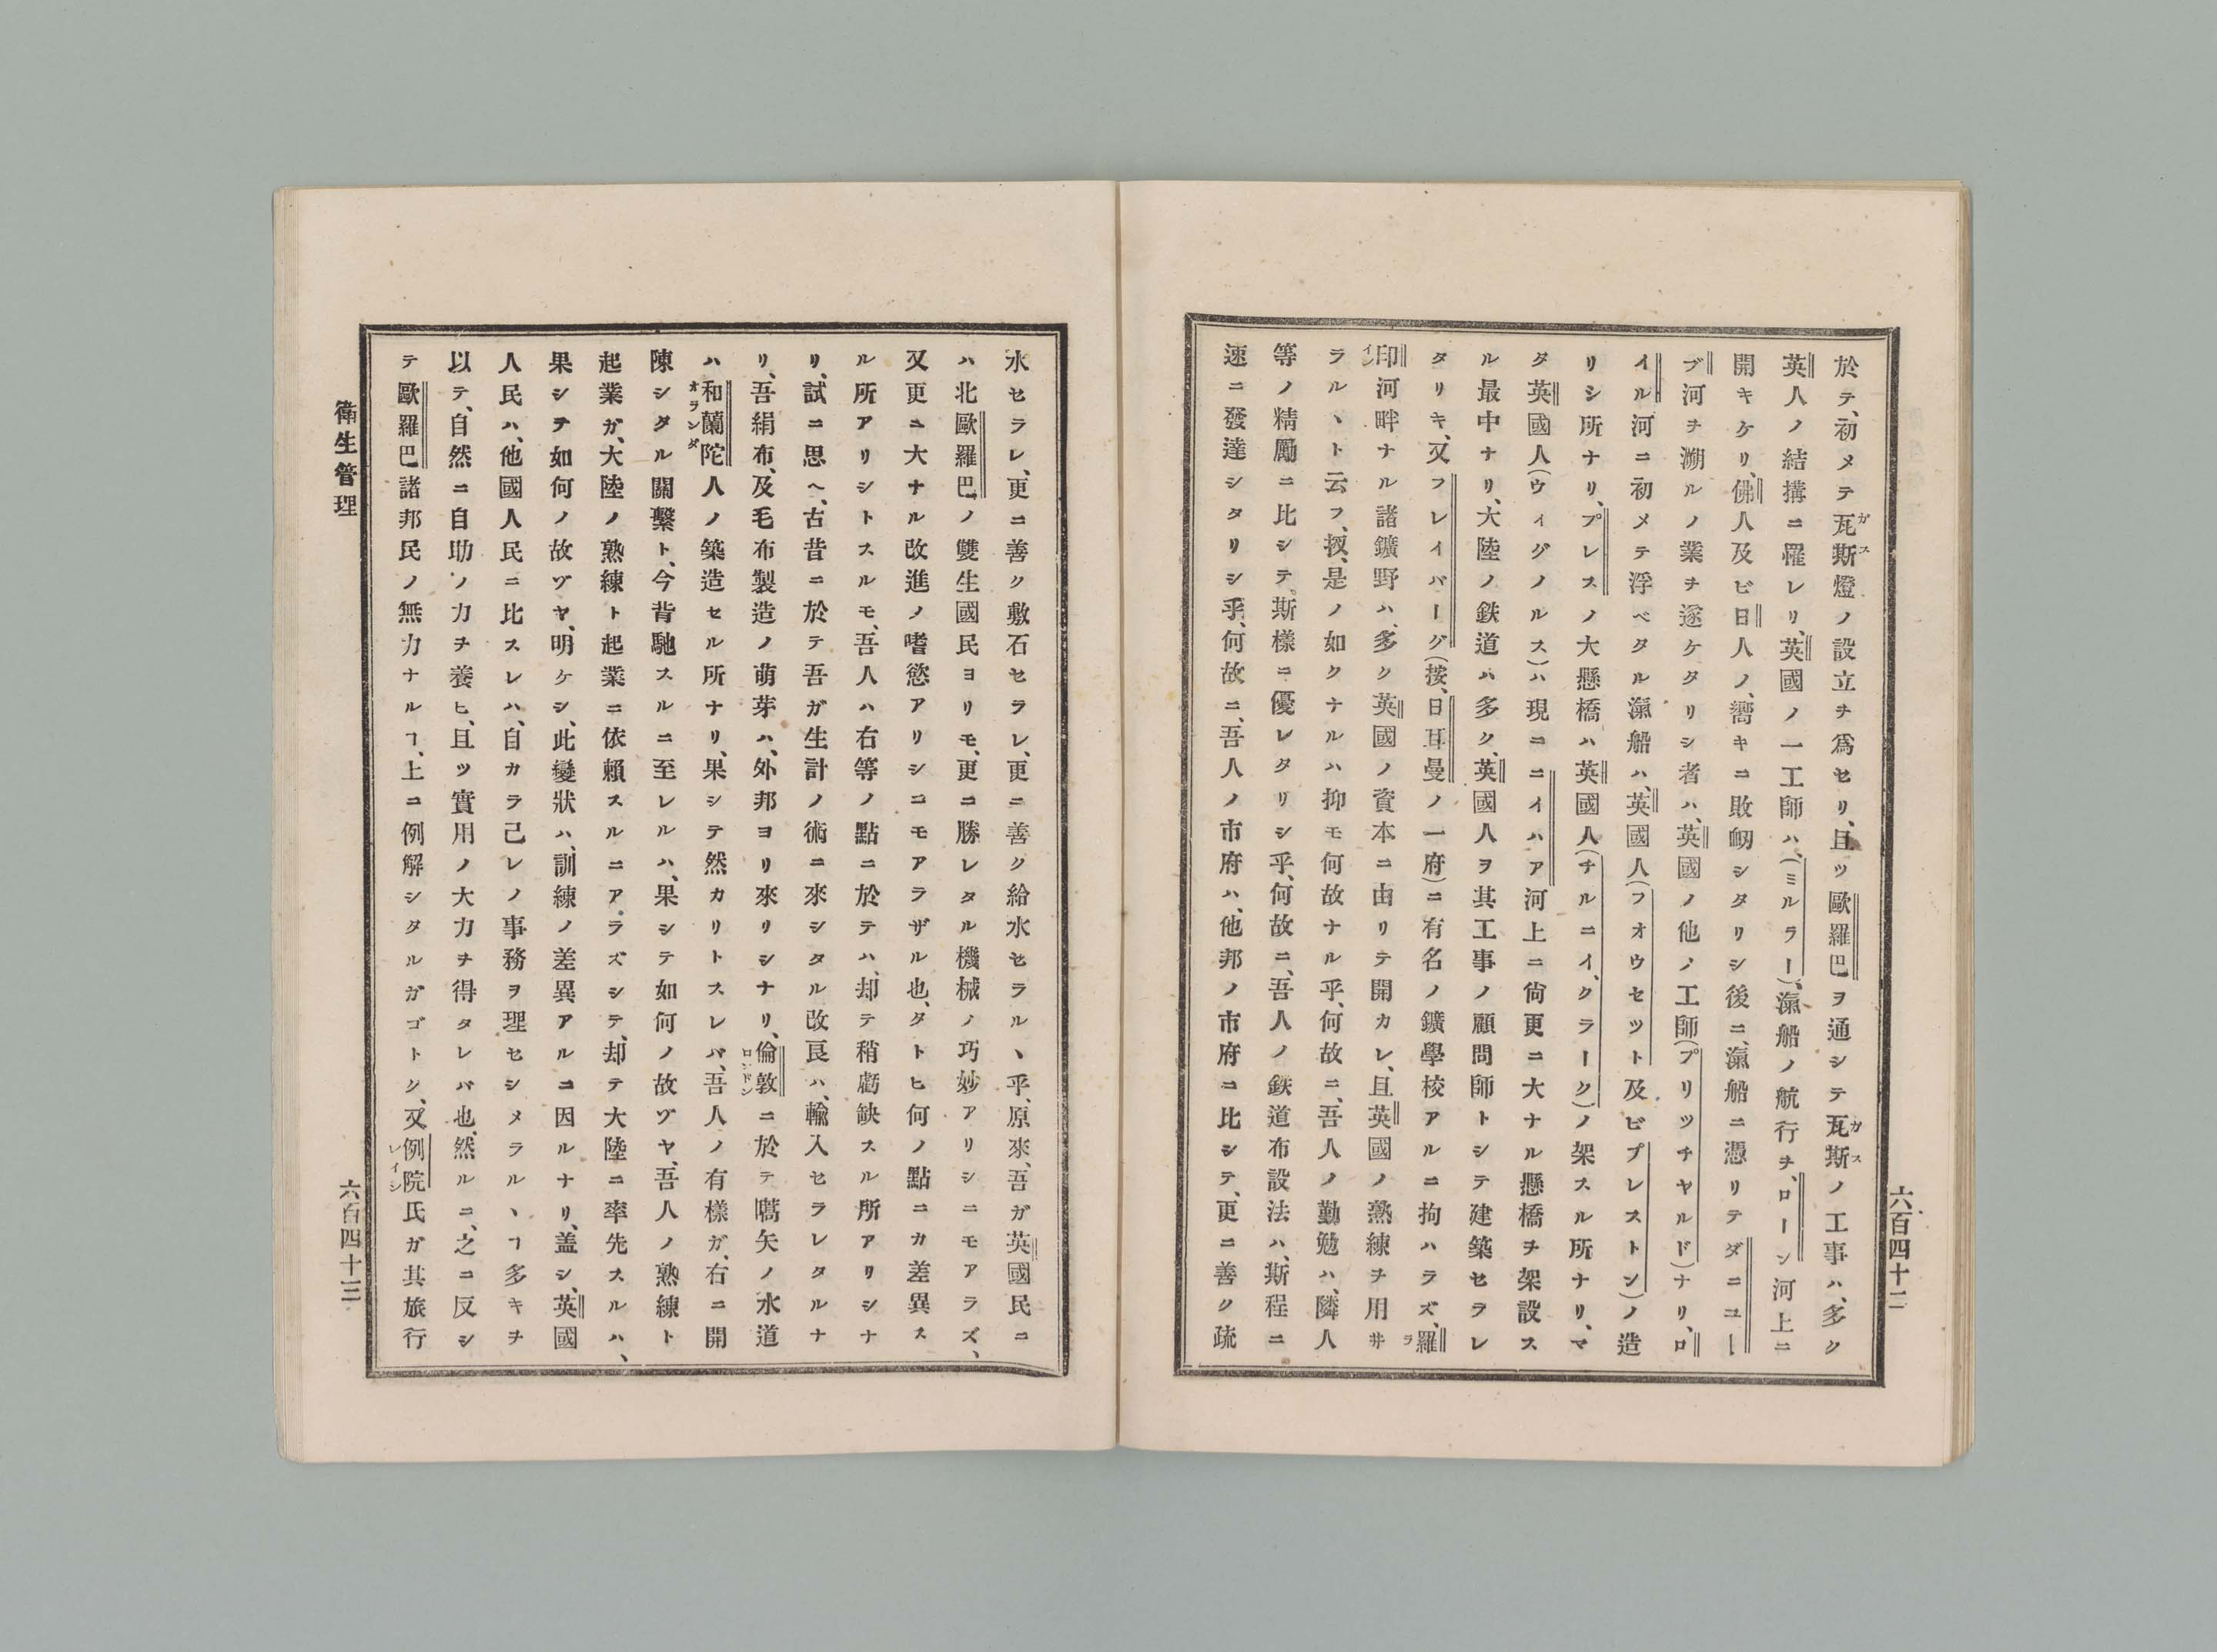 六百四十二
於テ、初メテ瓦斯燈ノ設立ヲ爲セリ、且ツ歐羅巴ヲ通シテ瓦斯ノ工事ハ、多ク
英人ノ結搆ニ罹レリ、英國ノ一工師ハ、(ミルラー)、滊船ノ航行ヲ、ローン河上ニ
開キケリ、佛人及ビ日人ノ、嚮キニ敗衂シタリシ後ニ、滊船ニ憑リテダニユー
ブ河ヲ溯ルノ業ヲ遂ケタリシ者ハ、英國ノ他ノ工師(プリツチヤルド)ナリ、ロ
イル河ニ初メテ浮べタル滊船ハ、英國人(フオウセツト及ビプレストン)ノ造
リシ所ナリ、プレスノ大懸橋ハ英國人(チルニイ、クラーク)ノ架スル所ナリ、マ
タ英國人(ウィグノルス)ハ現ニニイハア河上ニ尙更ニ大ナル懸橋ヲ架設ス
ル最中ナリ、大陸ノ鉄道ハ多ク、英國人ヲ其工事ノ顧問師トシテ建築セラレ
タリキ、又フレイバーグ(按、日耳曼ノ一府)ニ有名ノ鑛學校アルニ拘ハラズ、羅
印河畔ナル諸鑛野ハ、多ク英國ノ資本ニ由リテ開カレ、且英國ノ熟練ヲ用ヰ
ラルヽト云フ、扨、是ノ如クナルハ抑モ何故ナル乎、何故ニ、吾人ノ勤勉ハ、隣人
等ノ精勵ニ比シテ、斯樣ニ優レタリシ乎、何故ニ、吾人ノ鉄道布設法ハ、斯程ニ
速ニ發達シタリシ乎、何故ニ、吾人ノ市府ハ、他邦ノ市府ニ比シテ、更ニ善ク疏
水セラレ、更ニ善ク敷石セラレ、更ニ善ク給水セラルヽ乎、原來、吾ガ英國民ニ
ハ北歐羅巴ノ雙生國民ヨリモ、更ニ勝レタル機械ノ巧妙アリシニモアラズ、
又更ニ大ナル改進ノ嗜慾アリシニモアラザル也、タトヒ何ノ點ニカ差異ス
ル所アリシトスルモ、吾人ハ右等ノ點ニ於テハ、却テ稍虧缺スル所アリシナ
リ、試ニ思ヘ、古昔ニ於テ吾ガ生計ノ術ニ來シタル改良ハ、輸入セラレタルナ
リ、吾絹布、及毛布製造ノ萌芽ハ、外邦ヨリ來リシナリ、倫敦ニ於テ嚆矢ノ水道
ハ和蘭陀人ノ築造セル所ナリ、果シテ然カリトスレバ、吾人ノ有樣ガ、右ニ開
陳シタル關繫ト、今背馳スルニ至レルハ、果シテ如何ノ故ヅヤ、吾人ノ熟練ト
起業ガ、大陸ノ熟練ト起業ニ依賴スルニアラズシテ、却テ大陸ニ率先スルハ、
果シテ如何ノ故ヅヤ、明ケシ、此變狀ハ、訓練ノ差異アルニ因ルナリ、盖シ、英國
人民ハ、他國人民ニ比スレハ、自カラ己レノ事務ヲ理セシメラルヽヿ多キヲ
以テ、自然ニ自助ノ力ヲ養ヒ、且ツ實用ノ大力ヲ得タレバ也、然ルニ、之ニ反シ
テ歐羅巴諸邦民ノ無力ナルヿ、上ニ例解シタルガゴトク、又例院氏ガ其旅行
衛生管理
六百四十三